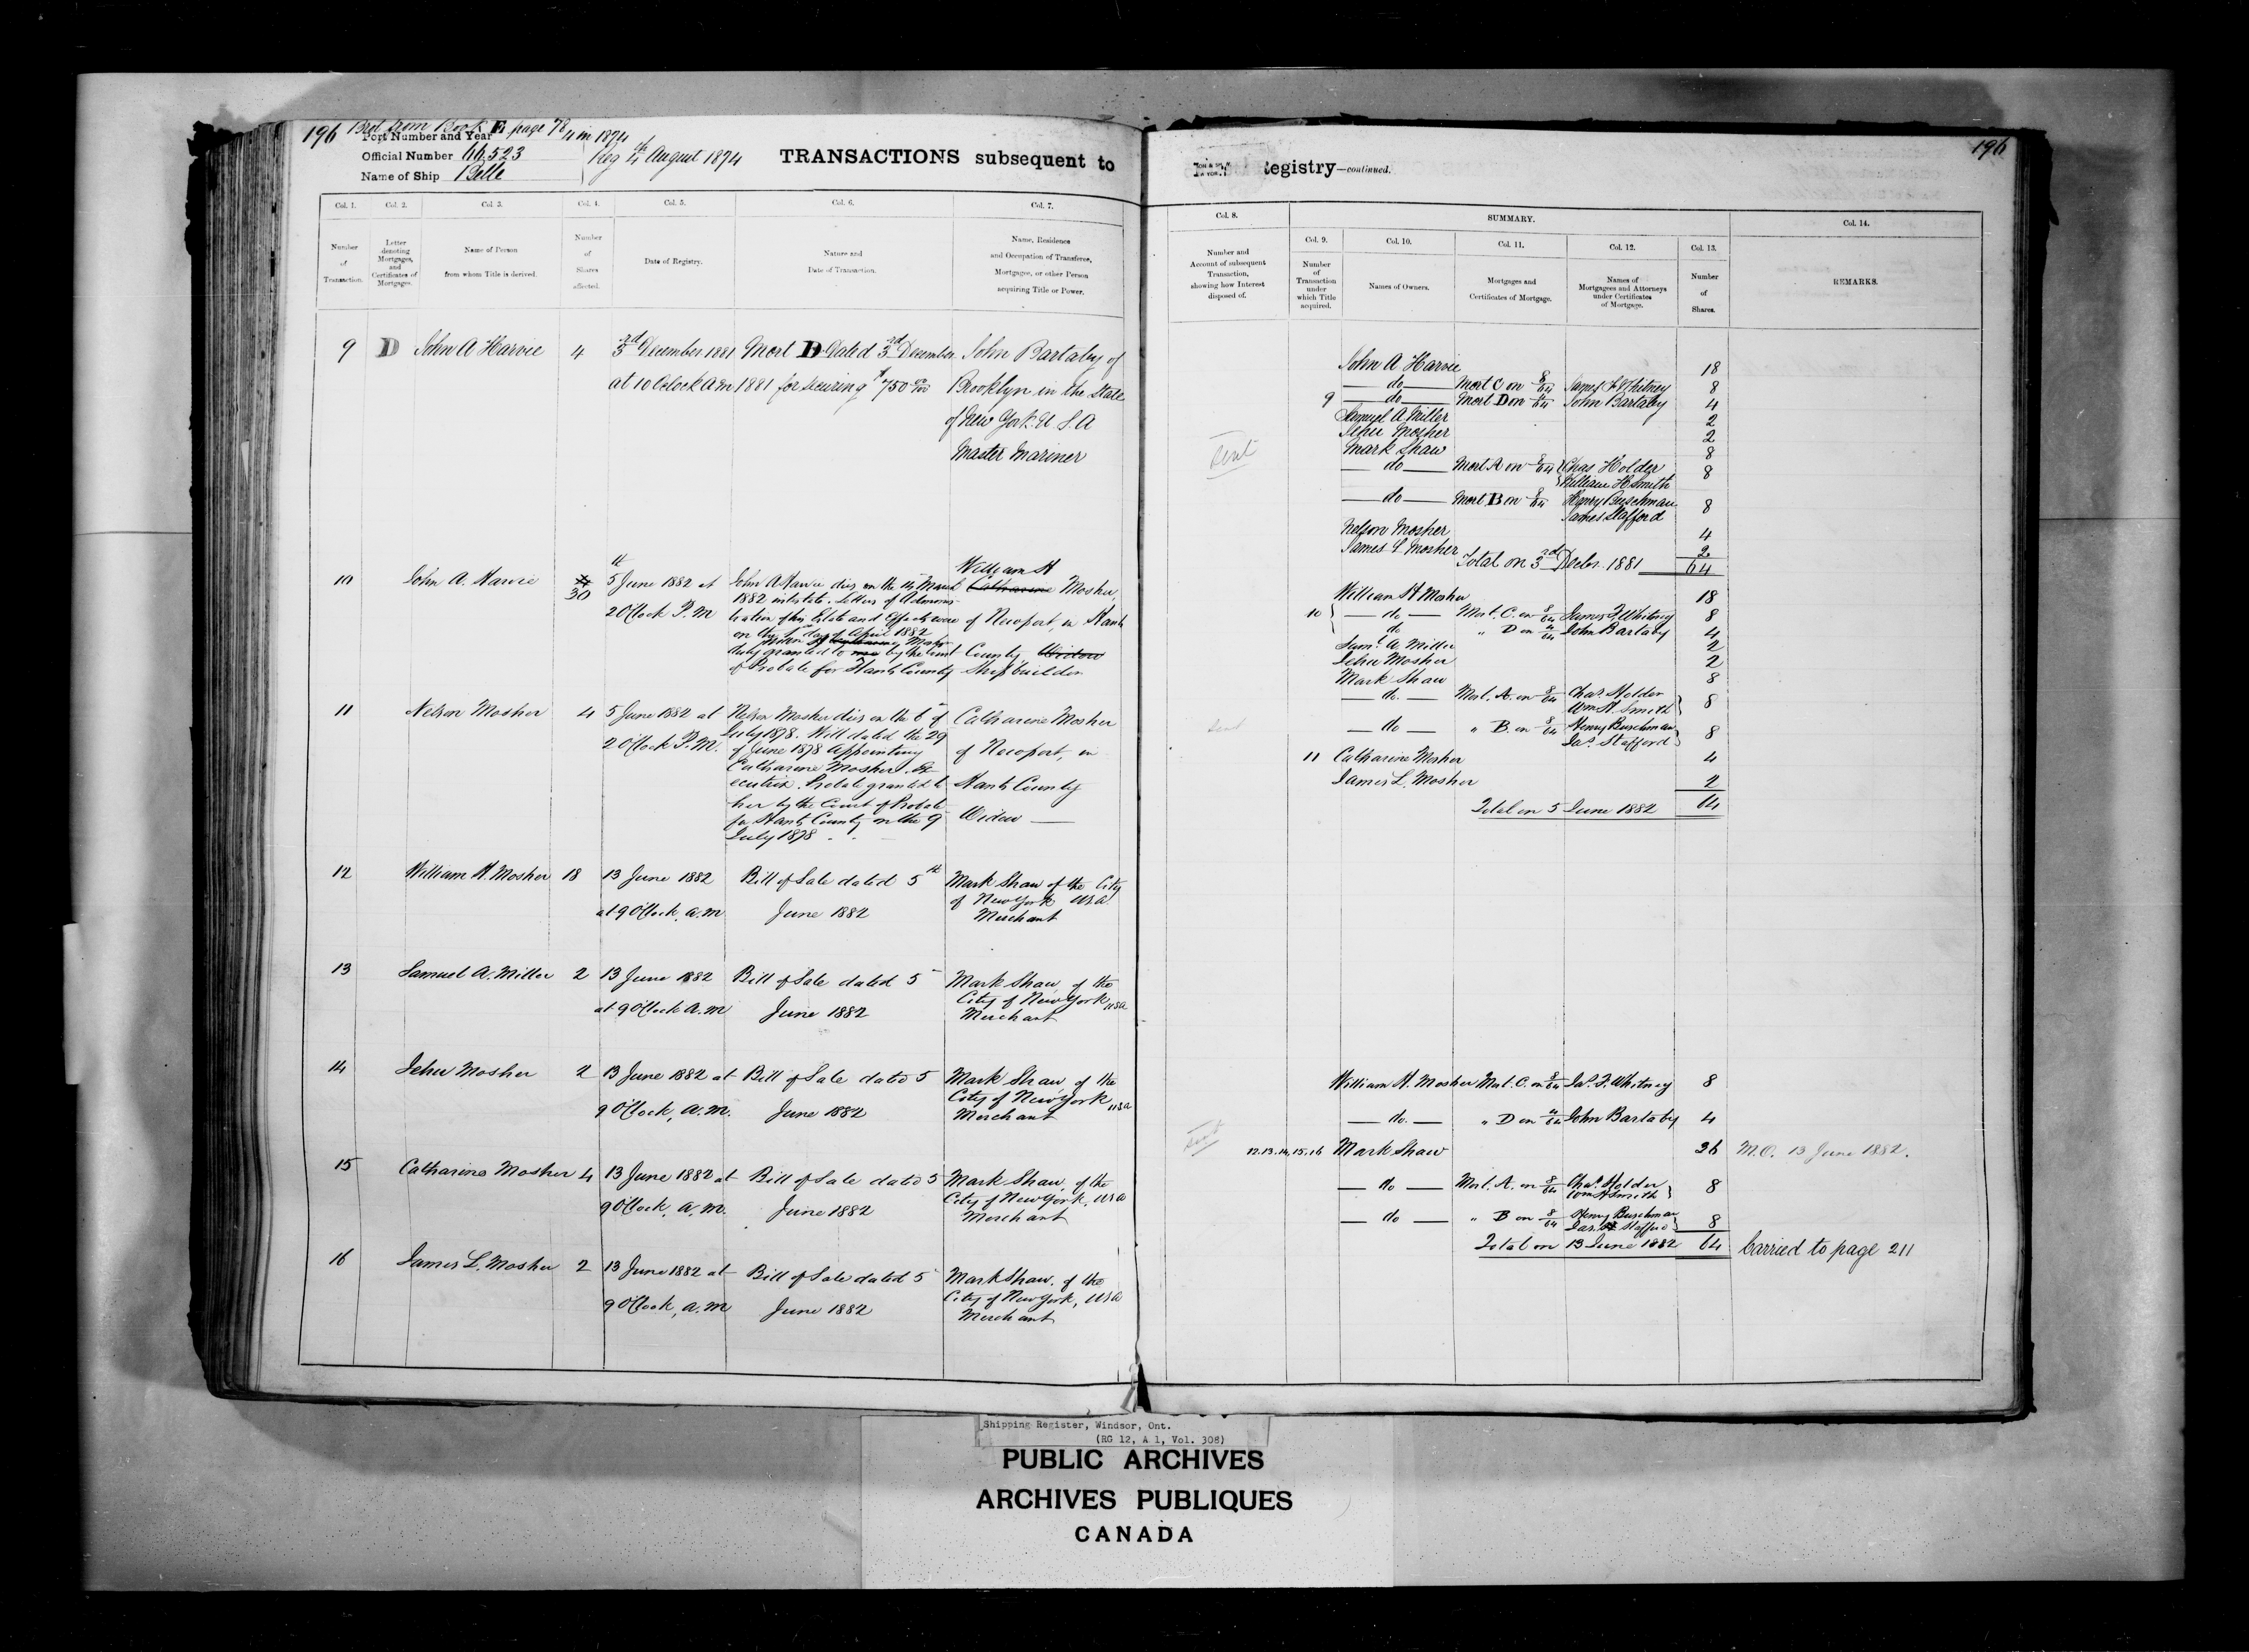 196 Brot from Book E page 78
Port Number and Year 4 in 1874
Official Number 66,523
Name of Ship Belle
Reg 4th August 1874
TRANSACTIONS subsequent to
Registry—continued.
196
Col. 1. Col. 2. Col. 3. Col. 4. Col. 5. Col. 6. Col. 7.
Number of Transaction.
Letter denoting Mortgages, and Certificates of Mortgages.
Name of Person from whom Title is derived.
Number of Shares affected.
Date of Registry.
Nature and Date of Transaction.
Name, Residence and Occupation of Transferee, Mortgagee, or other Person acquiring Title or Power.
Col. 8. SUMMARY. Col. 14.
Col. 9. Col. 10. Col. 11. Col. 12. Col. 13.
Number and Account of subsequent Transaction, showing how Interest disposed of.
Number of Transaction under which Title acquired.
Names of Owners.
Mortgages and Certificates of Mortgage.
Names of Mortgagees and Attorneys under Certificates of Mortgage.
Number of Shares.
REMARKS.
9 D John A Harvie 4 3rd December 1881 Mort D Dated 3rd December John Bartaby of
at 10 Oclock AM 1881 for securing $750 Brooklyn in the State
of New York U.S.A
Master Mariner
10 John A. Harvie 4 5th June 1882 at John A Harvie dies on the 14 March William H Catharine Mosher,
30 2 O'Clock P.M 1882 intestate. Letters of Adminis-
tration of his Estate and Effects were of Newport, in Hants
on the 1st day of April 1882
William H Catharine Mosher
duly granted to me by the Court County Widow
of Probate for Hants County Shipbuilder
11 Nelson Mosher 4 5 June 1882 at Nelson Mosher dies on the 6 of Catharine Mosher
2 O'Clock P.M. July 1878. Will dated the 29
of June 1878 Appointing of Newport, in
Catharine Mosher Ex-
ecutrix. Probate granted to Hants County
her by the Court of Probate
for Hants County on the 9 Widow
July 1878
12 William H. Mosher 18 13 June 1882 Bill of Sale dated 5th Mark Shaw of the City
at 9 O'Clock, a.m June 1882 of New York USA
Merchant
13 Samuel A. Miller 2 13 June 1882 Bill of Sale dated 5 Mark Shaw, of the
at 9 O'Clock A.M June 1882 City of New York, USA
Merchant
14 Jehu Mosher 2 13 June 1882 at Bill of Sale dated 5 Mark Shaw, of the
9 O'Clock, A.M. June 1882 City of New York USA
Merchant
15 Catharine Mosher 4 13 June 1882 at Bill of Sale dated 5 Mark Shaw, of the
9 O'Clock, A.M. June 1882 City of New York, USA
Merchant
16 James L. Mosher 2 13 June 1882 at Bill of Sale dated 5 Mark Shaw, of the
9 O'Clock, A.M June 1882 City of New York, USA
Merchant
John A Harvie 18
do Mort C on 8/64 James F Whitney 8
9 do Mort D on 4/64 John Bartaby 4
Samuel A Miller 2
Jehu Mosher 2
Mark Shaw 8
Sent
do Mort A on 8/64 Chas Holder 8
William H Smith
do Mort B on 8/64 Henry Buschman 8
James Stafford
Nelson Mosher 4
James L Mosher 2
Total on 3rd Decbr. 1881 64
William H Mosher 18
10 do Mort. C. on 8/64 James F Whitney 8
do " D on 4/64 John Bartaby 4
Saml. A. Miller 2
Jehu Mosher 2
Mark Shaw 8
do. Mort. A. on 8/64 Chas. Holder 8
Wm H. Smith
Sent
do " B. on 8/64 Henry Buschman 8
Jas. Stafford
11 Catharine Mosher 4
James L. Mosher 2
Total on 5 June 1882 64
William H. Mosher Mort. C. on 8/64 Jas. F. Whitney 8
do. " D on 4/64 John Bartaby 4
Sent
12.13.14,15,16 Mark Shaw 36 M.O. 13 June 1882.
do Mort. A. on 8/64 Chas. Holder 8
Wm H Smith
do " B on 8/64 Henry Buschman 8
Jas. Stafford
Total on 13 June 1882 64 Carried to page 211
Shipping Register, Windsor, Ont.
(RG 12, A 1, Vol. 308)
PUBLIC ARCHIVES
ARCHIVES PUBLIQUES
CANADA